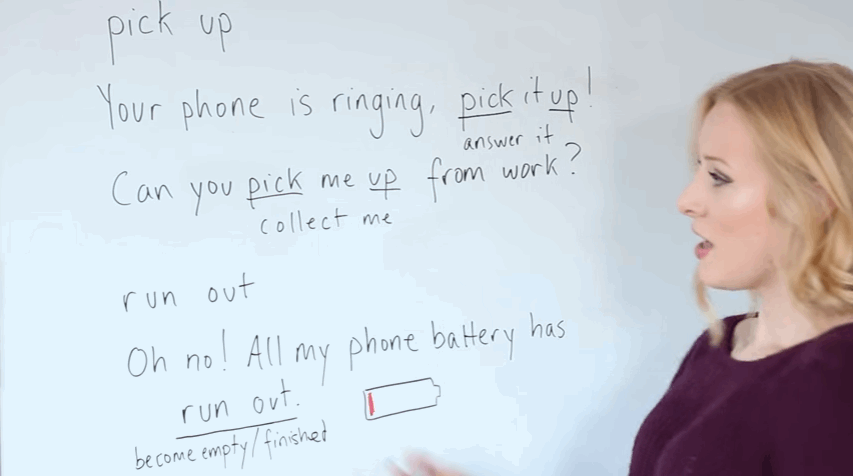 pick up
Your phone is ringing, pick it up!
answer it
Can you pick me up from work?
collect me
run out
Oh no! All my phone battery has
run out.
become empty/finished